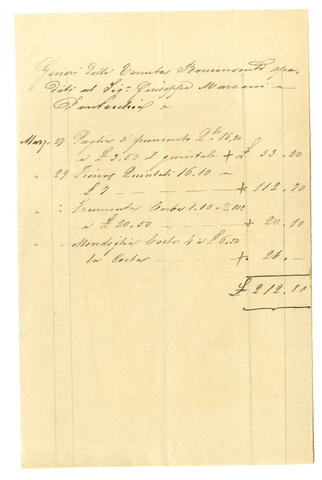 Generi della Tenuta Bonconvento spe-
diti al Sigr Giuseppe Marconi a
Pontecchio =
Marzo 27 Paglia di frumento Qli 15,20
a £ 3.50 il quintale + £ 53.20
" 29 Quintali 16.10 a
£ 7 — + 112.70
" " Frumento Corbe 1.10
a £ 20.50 — + 20.90
" " Mondiglia Corbe 4 a £ 6,50
la Corba — + 26.—
£ 212.80